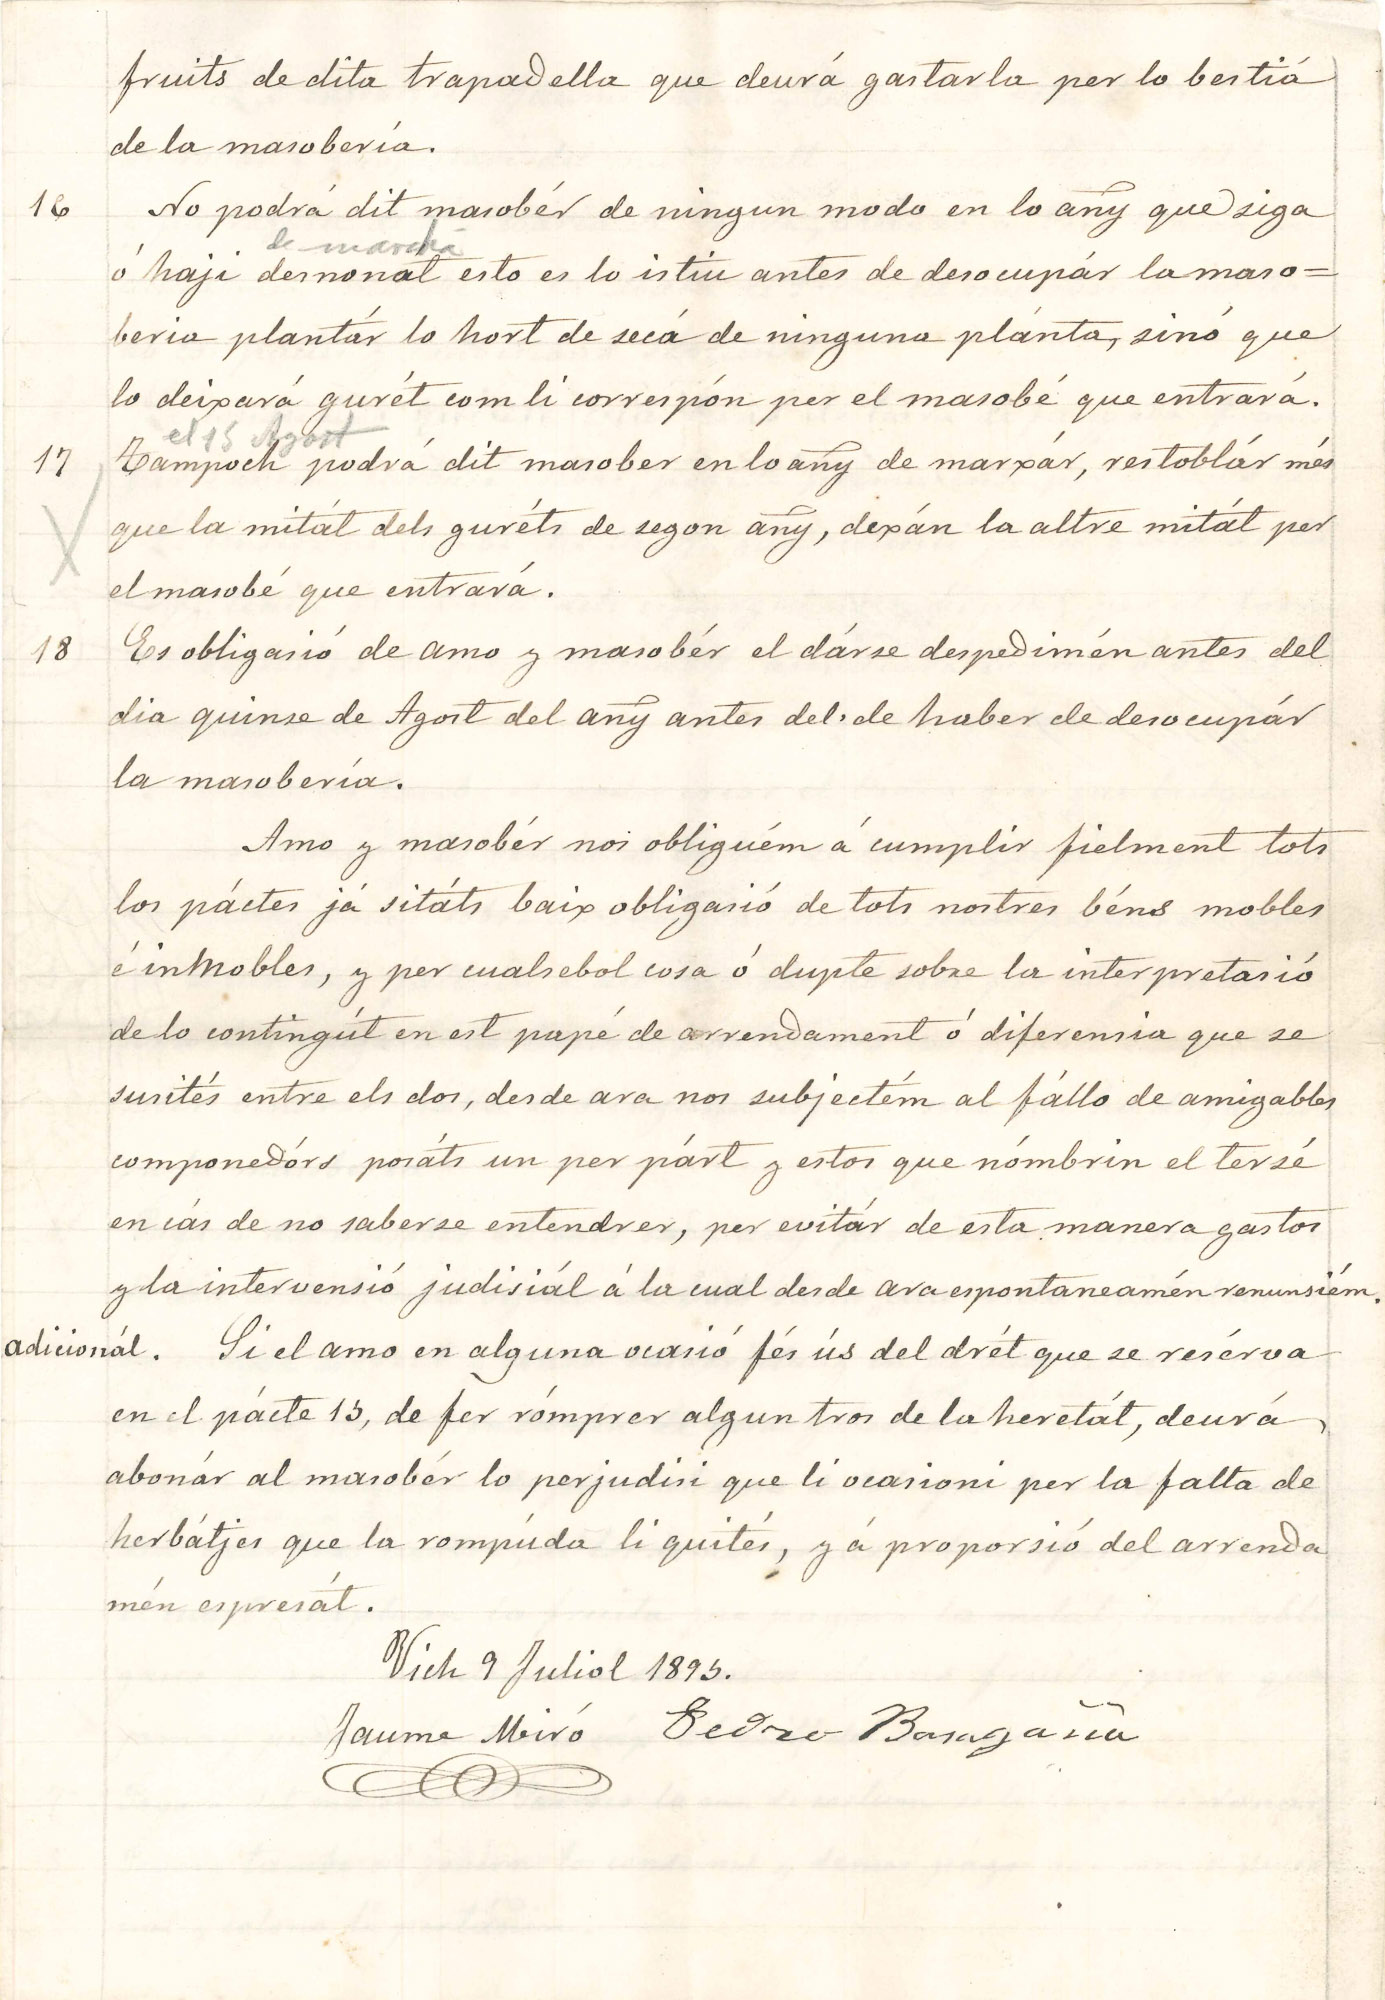 fruits de dita trapadella que deurá gastarla per lo bestiá
de la masobería.
16 No podrá dit masobér de ningun modo en lo añy que siga
de marchá
ó haji desnonat esto es lo istiu antes de desocupár la maso=
beria plantár lo hort de secá de ninguna plánta, sinó que
lo deixará gurét com li correspón per el masobé que entrará.
el 15 Agost
17 Tampoch podrá dit masober en lo añy de marxár, restoblár més
que la mitát dels guréts de segon añy, dexán la altre mitát per
el masobé que entrará.
18 Es obligasió de amo y masobér el dárse despedimén antes del
dia quinse de Agost del añy antes del de haber de desocupár
la masobería.
Amo y masobér nos obliguém á cumplir fielment tots
los páctes já sitáts baix obligasió de tots nostres béns mobles
é inmobles, y per cualsebol cosa ó dupte sobre la interpretasió
de lo contingút en est papé de arrendament ó diferensia que se
susités entre els dos, desde ara nos subjectém al fállo de amigables
componedórs posáts un per párt y estos que nómbrin el tersé
en cás de no saberse entendrer, per evitár de esta manera gastos
y la intervensió judisiál á la cual desde ara espontaneamén renunsiém.
adicionál. Si el amo en alguna ocasió fés ús del drét que se resérva
en el pácte 15, de fer rómprer algun tros de la heretát, deurá
abonár al masobér lo perjudisi que li ocasioni per la falta de
herbátjes que la rompúda li quités, y á proporsió del arrenda
mén espresát.
Vich 9 Juliol 1895.
Jaume Miró Pedro Basagaña